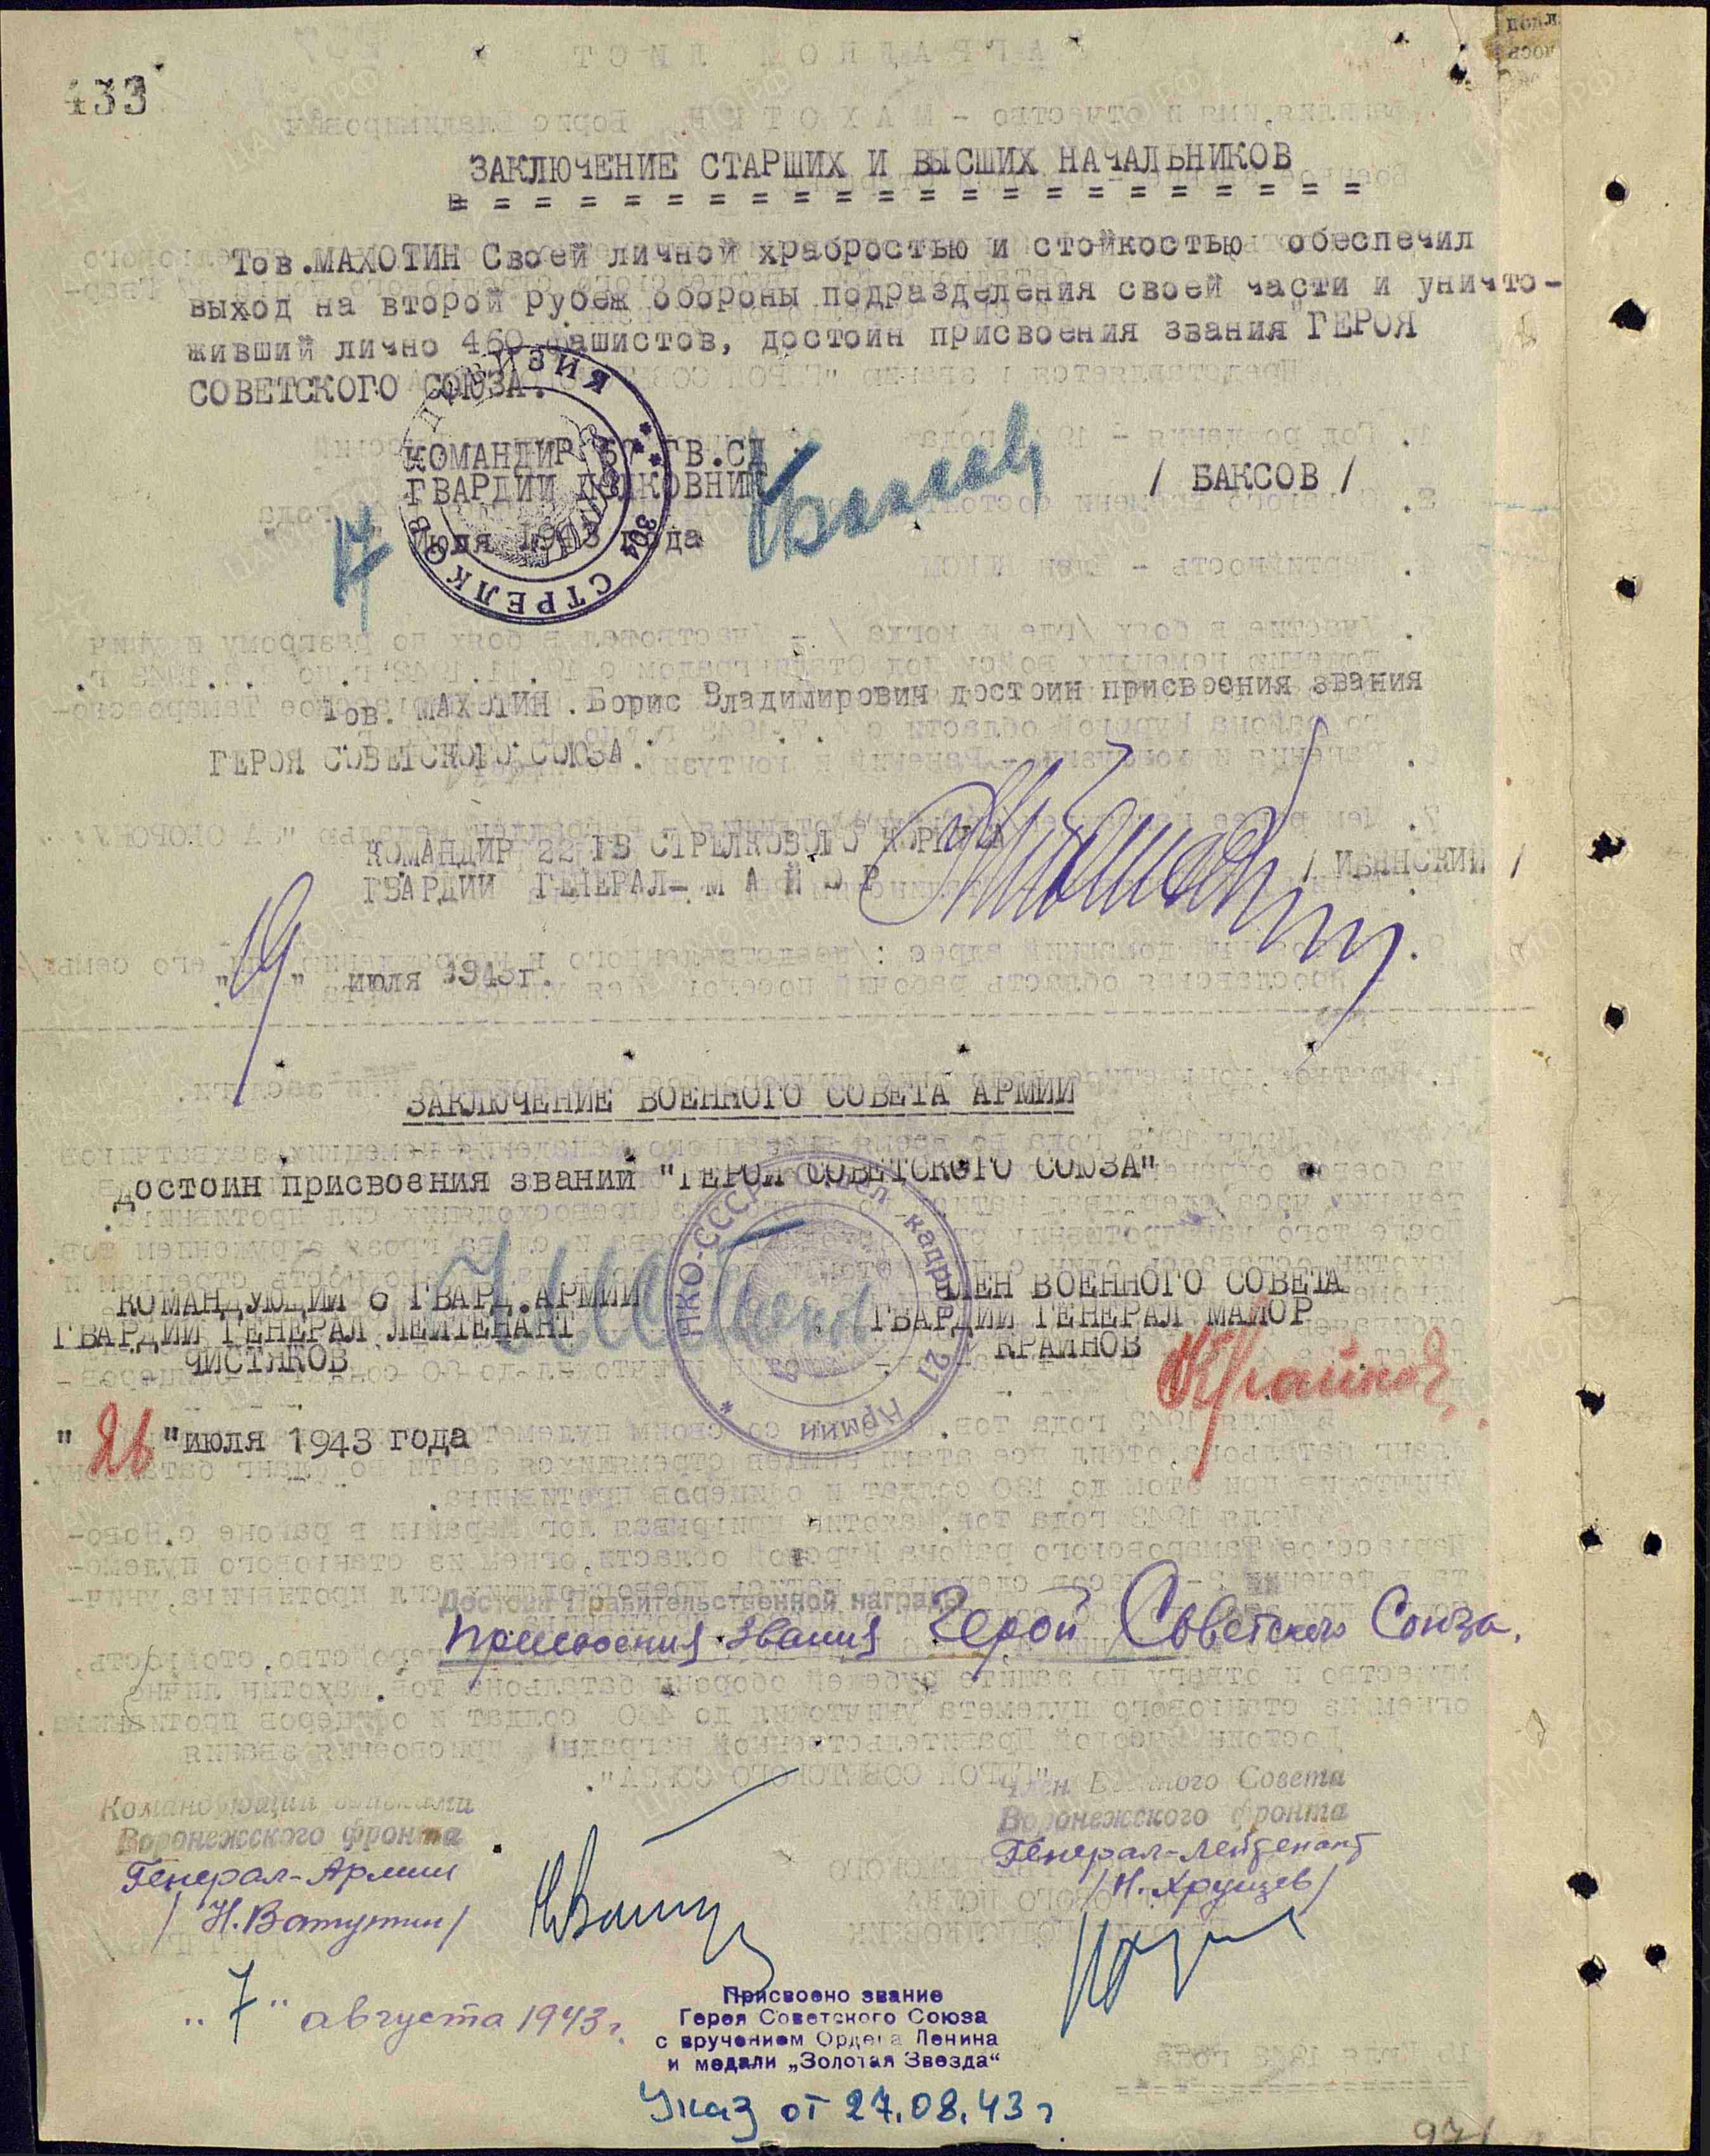 433
ЗАКЛЮЧЕНИЕ СТАРШИХ И ВЫСШИХ НАЧАЛЬНИКОВ
Тов.МАХОТИН Своей личной храбростью и стойкостью обеспечил
выход на второй рубеж обороны подразделения своей части и уничто-
живший лично 460 фашистов, достоин присвоения звания "ГЕРОЯ
СОВЕТСКОГО СОЮЗА.
КОМАНДИР 67 ГВ.СД
ГВАРДИИ ПОЛКОВНИК
/ БАКСОВ /
17 июля 1943 года
Тов. МАХОТИН .Борис Владимирович достоин присвоения звания
ГЕРОЯ СОВЕТСКОГО СОЮЗА.
КОМАНДИР 22 ГВ СТРЕЛКОВОГО КОРПУСА
ГВАРДИИ ГЕНЕРАЛ- М А Й О Р
/ ИБЯНСКИЙ /
"19" июля 1943г.
ЗАКЛЮЧЕНИЕ ВОЕННОГО СОВЕТА АРМИИ
достоин присвоения званий "ГЕРОЯ СОВЕТСКОГО СОЮЗА"
КОМАНДУЮЩИЙ 6 ГВАРД.АРМИИ
ГВАРДИИ ГЕНЕРАЛ ЛЕЙТЕНАНТ
ЧИСТЯКОВ
ЧЛЕН ВОЕННОГО СОВЕТА
ГВАРДИИ ГЕНЕРАЛ МАЙОР
КРАЙНОВ
НКО-СССР Отдел кадров 21 Армии
"26"июля 1943 года
Достоин Правительственной награды
присвоения звания Герой Советского Союза.
Командующий войсками
Воронежского фронта
Генерал-Армии
/Н.Ватутин/
Член Военного Совета
Воронежского фронта
Генерал-лейтенант
/Н.Хрущев/
"7" августа 1943г.
Присвоено звание
Героя Советского Союза
с вручением Ордена Ленина
и медали „Золотая Звезда“
Указ от 27.08.43 г